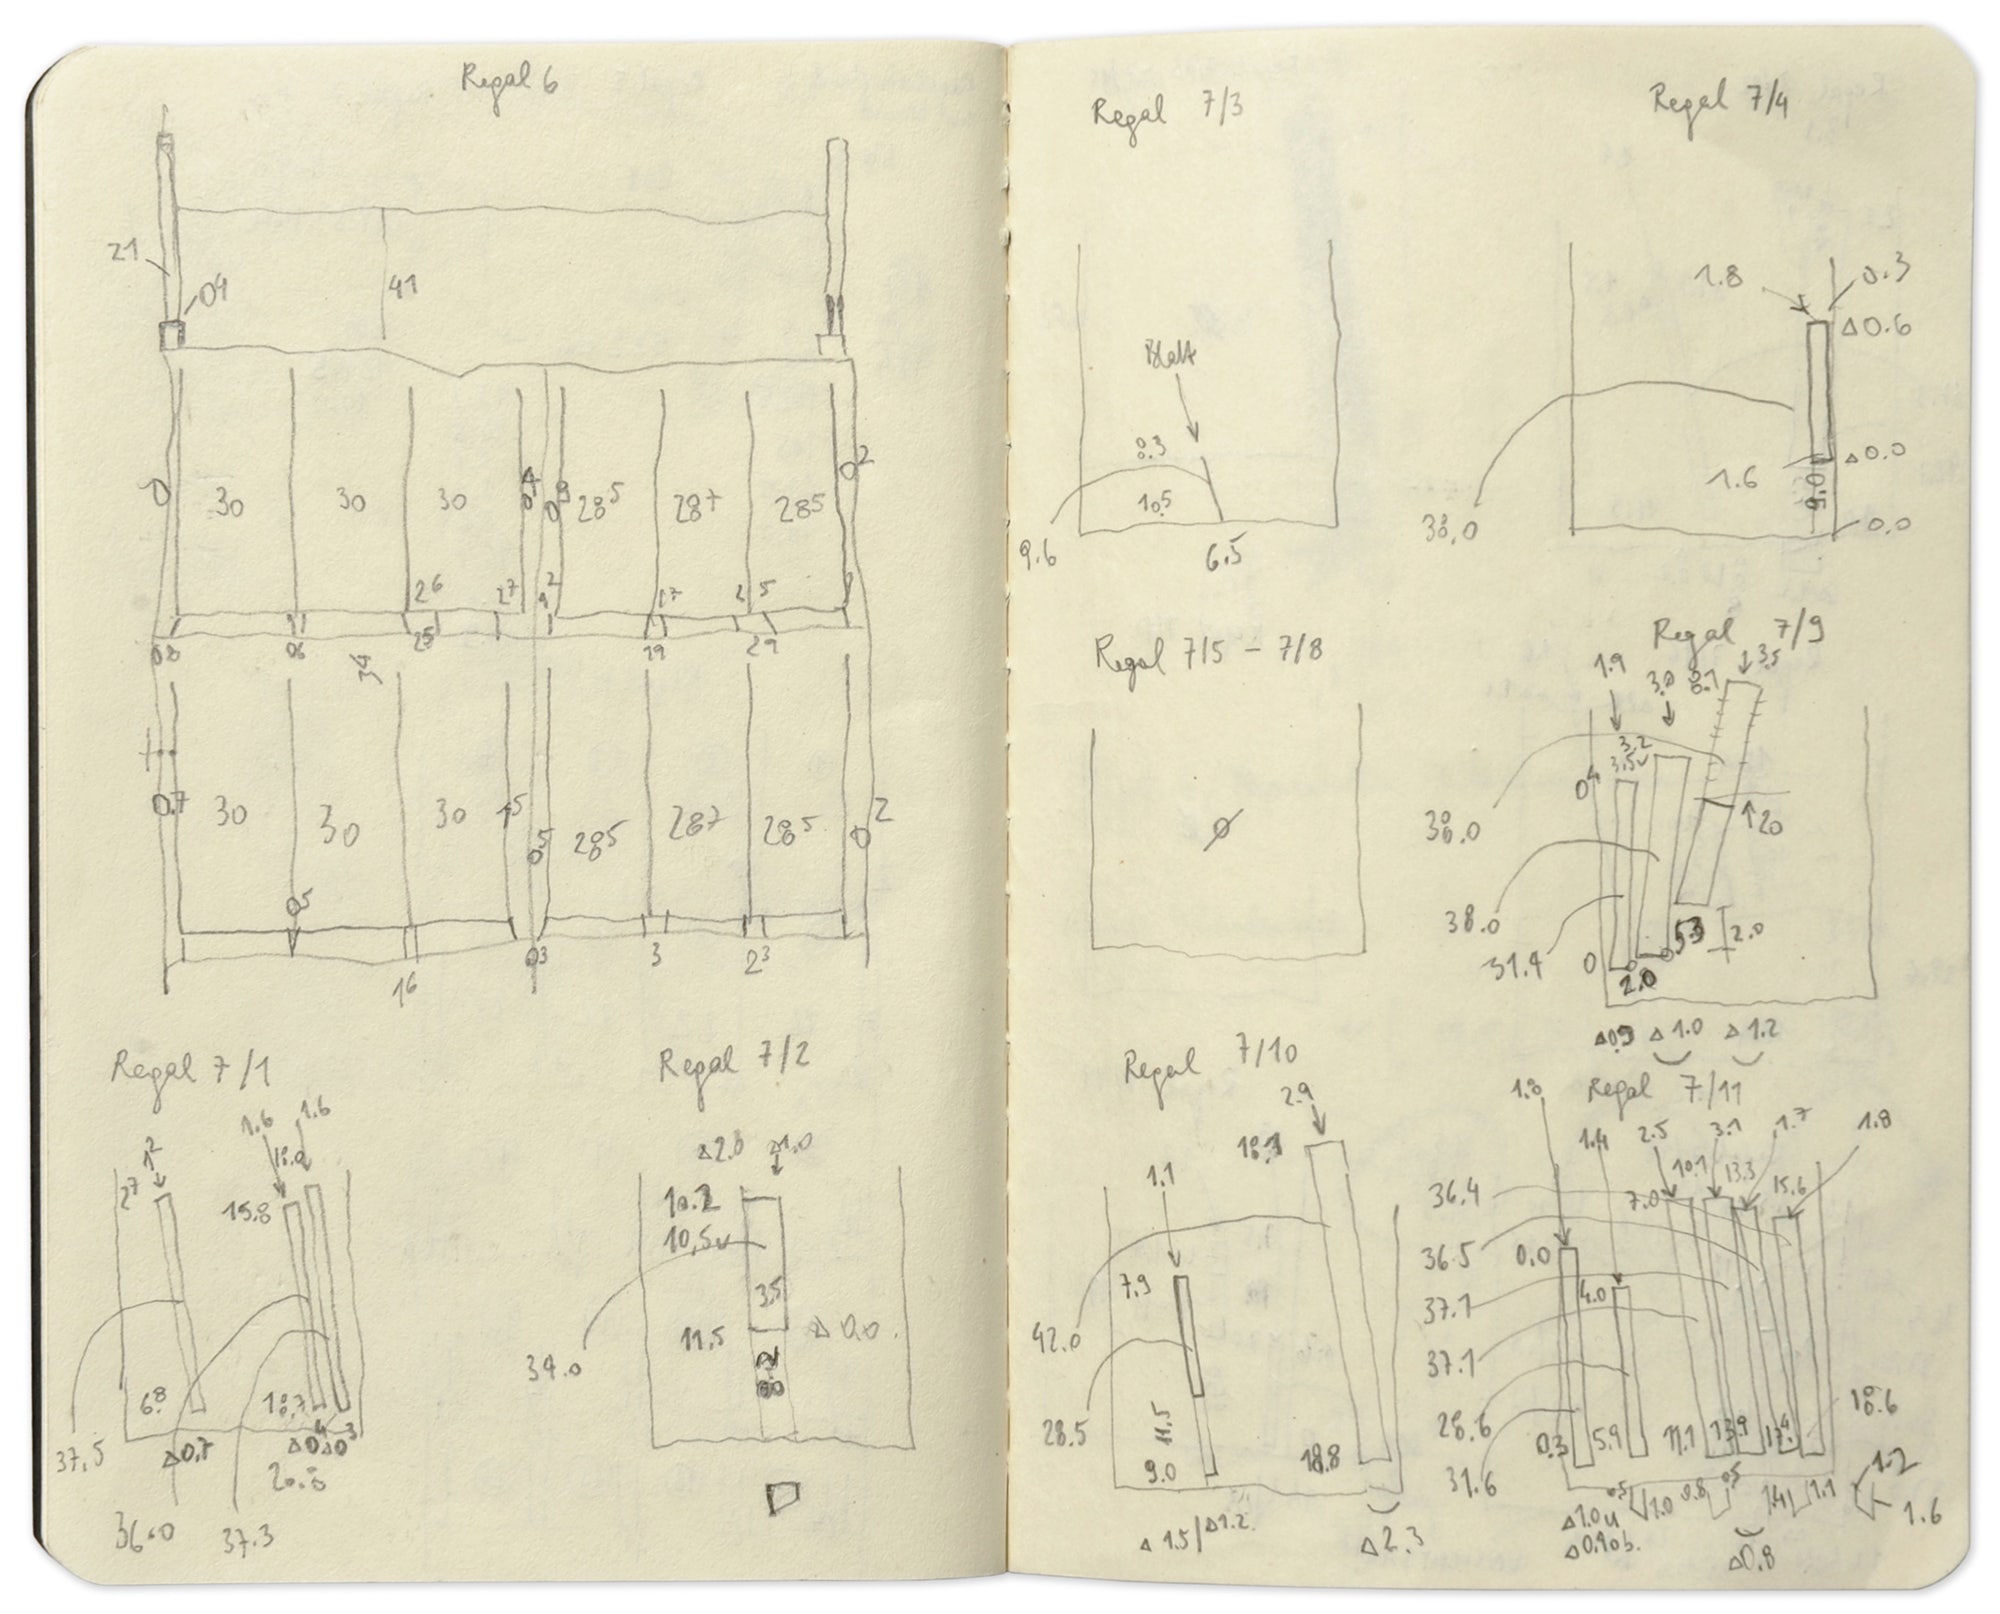 Regal 6
21
04
41
0
30
30
30
28⁵
28⁷
28⁵
0²
2⁶
2⁷
9²
17
2 5
08
06
25
29
29
0.7
30
30
30
1⁵
0⁵
28⁵
287
28⁵
0²
05
16
03
3
2³
Regal 7/1
1.6
1.6
1²
2⁷
18.0
15.8
6⁸
18.7
37.5
Δ0.7
Δ0⁴
Δ0³
20.8
36.0
37.3
Regal 7/2
Δ2.0
Δ1.0
10.2
10,5u
3.5
11.5
Δ 0.0.
39.0
Regal 7/3
Blatt
8.3
10.5
9.6
6.5
Regal 7/4
1.8
0.3
Δ0.6
Δ0.0
1.6
9.0
38,0
0.0
Regal 7/5 – 7/8
Ø
Regal 7/9
1.9
3.0
8.1
3.5
3.2
3.5u
0⁴
38.0
↑20
38.0
31.4
0
2.0
5.3
2.0
Δ0.9
Δ 1.0
Δ 1.2
Regal 7/10
2.9
18.1
1.1
7.9
42.0
28.5
11.5
9.0
18.8
Δ 1.5/Δ1.2.
Δ2.3
Regal 7/11
1.8
1.4
2.5
3.1
1.7
1.8
10.1
13.3
15.6
36.4
7.0
36.5
0.0
4.0
37.1
37.1
28.6
0.3
5.9
11.1
13.9
17.4
18.6
31.6
0.5
1.0
0.8
0.5
1.4
1.1
1.2
1.6
Δ1.0u
Δ0.90b.
Δ0.8